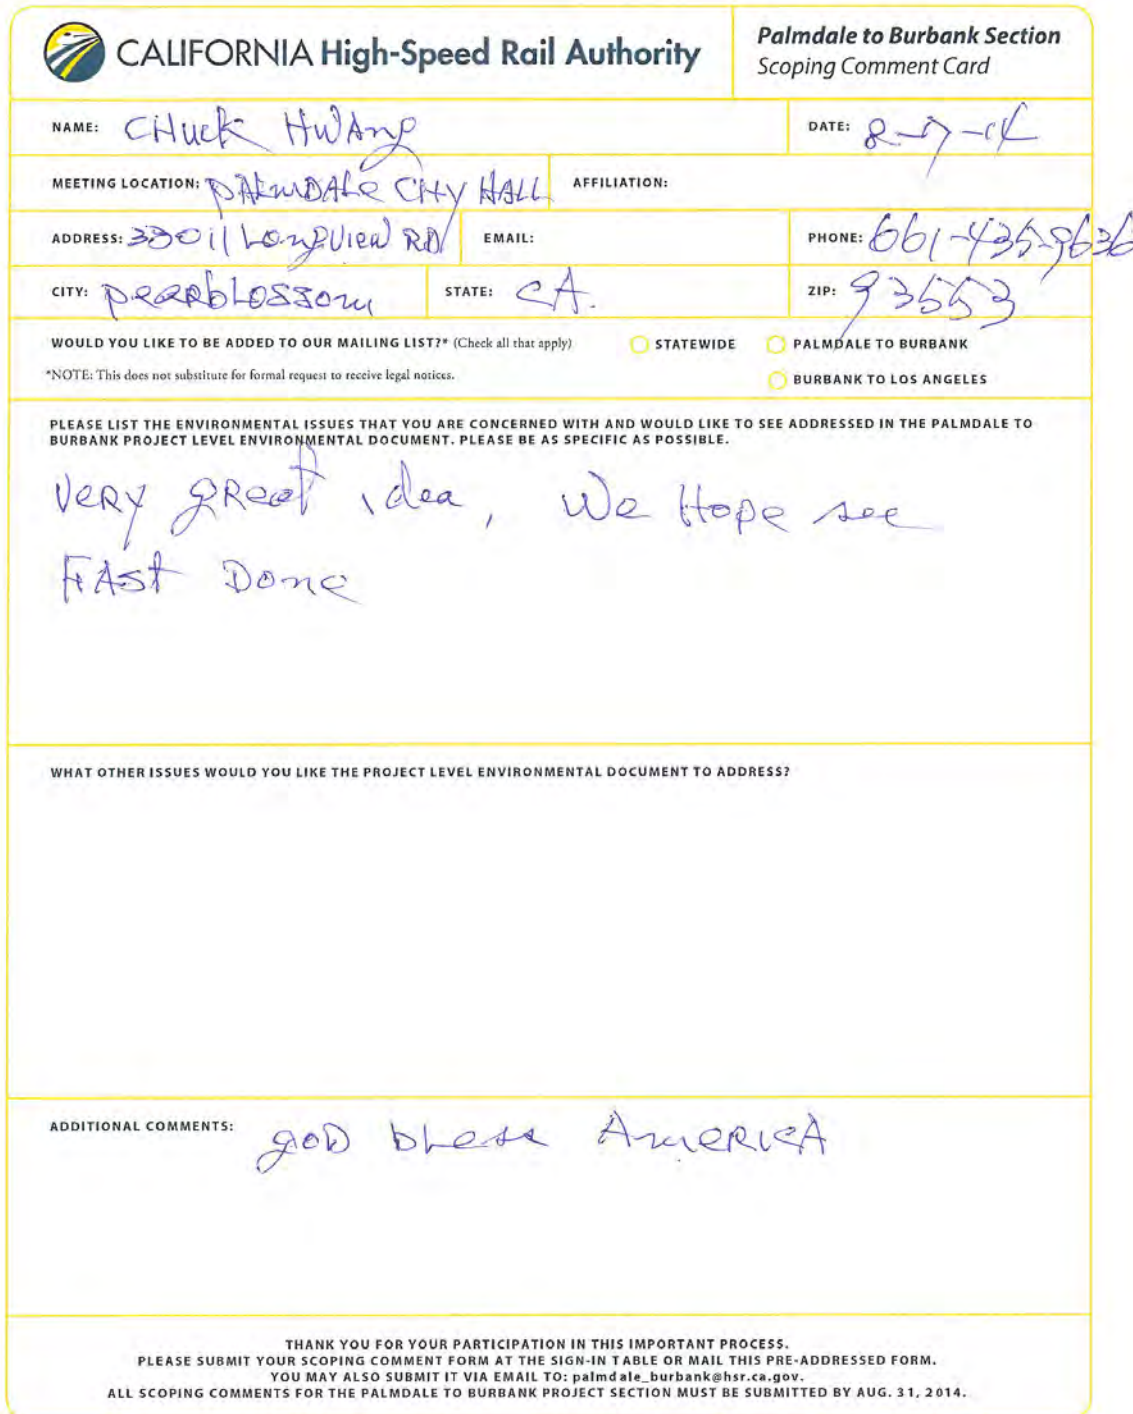 CALIFORNIA High-Speed Rail Authority
Palmdale to Burbank Section
Scoping Comment Card
NAME: CHuck HWAng
DATE: 8-7-14
MEETING LOCATION: PALMDALE CITY HALL
AFFILIATION:
ADDRESS: 33011 LongView RD
EMAIL:
PHONE: 661-435-9636
CITY: pearbLossom
STATE: CA.
ZIP: 93553
WOULD YOU LIKE TO BE ADDED TO OUR MAILING LIST?* (Check all that apply)
STATEWIDE
PALMDALE TO BURBANK
*NOTE: This does not substitute for formal request to receive legal notices.
BURBANK TO LOS ANGELES
PLEASE LIST THE ENVIRONMENTAL ISSUES THAT YOU ARE CONCERNED WITH AND WOULD LIKE TO SEE ADDRESSED IN THE PALMDALE TO
BURBANK PROJECT LEVEL ENVIRONMENTAL DOCUMENT. PLEASE BE AS SPECIFIC AS POSSIBLE.
VeRy gReat idea, We Hope see
FAst Done
WHAT OTHER ISSUES WOULD YOU LIKE THE PROJECT LEVEL ENVIRONMENTAL DOCUMENT TO ADDRESS?
ADDITIONAL COMMENTS: goD bLess AmeRICA
THANK YOU FOR YOUR PARTICIPATION IN THIS IMPORTANT PROCESS.
PLEASE SUBMIT YOUR SCOPING COMMENT FORM AT THE SIGN-IN TABLE OR MAIL THIS PRE-ADDRESSED FORM.
YOU MAY ALSO SUBMIT IT VIA EMAIL TO: palmdale_burbank@hsr.ca.gov.
ALL SCOPING COMMENTS FOR THE PALMDALE TO BURBANK PROJECT SECTION MUST BE SUBMITTED BY AUG. 31, 2014.